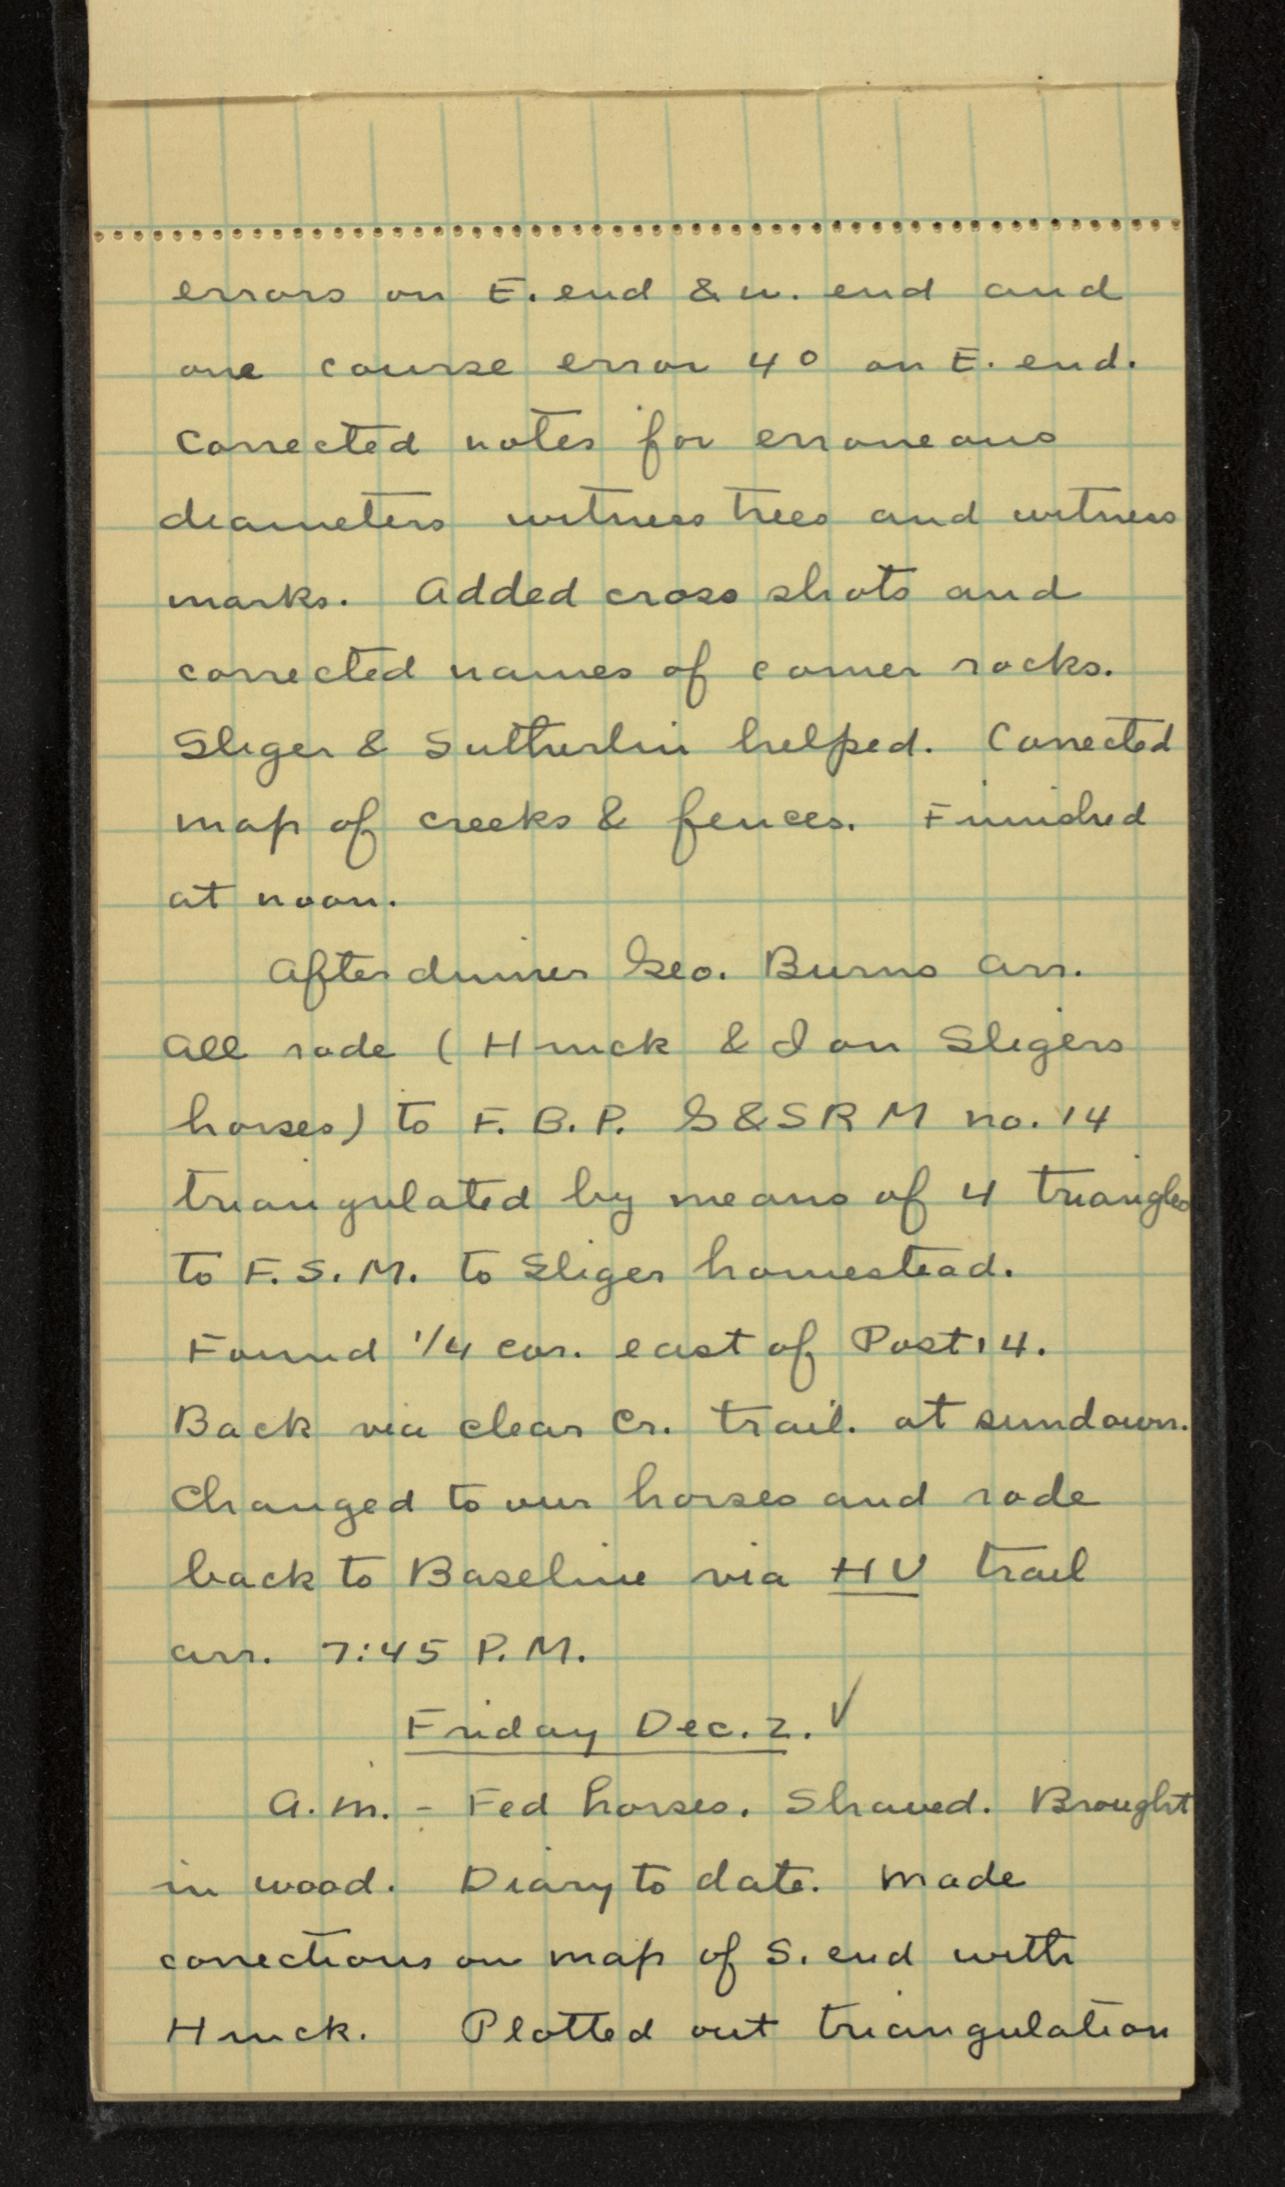 errors on E. end & w. end and
one course error 4° on E. end.
Corrected notes for erroneous
diameters witness trees and witness
marks. Added cross shots and
corrected names of corner rocks.
Sliger & Sutherlin helped. Corrected
map of creeks & fences. Finished
at noon.
After dinner Geo. Burns arr.
All rode (Hinck & I on Sligers
horses) to F. B. P. G&SRM no. 14
triangulated by means of 4 triangles
to F. S. M. to Sliger homestead.
Found 1/4 cor. east of Post 14.
Back via Clear Cr. trail. at sundown.
Changed to our horses and rode
back to Baseline via HU trail
arr. 7:45 P.M.
Friday Dec. 2. ✓
A.M. - Fed horses. Shaved. Brought
in wood. Diary to date. Made
corrections on map of S. end with
Hinck. Plotted out triangulation